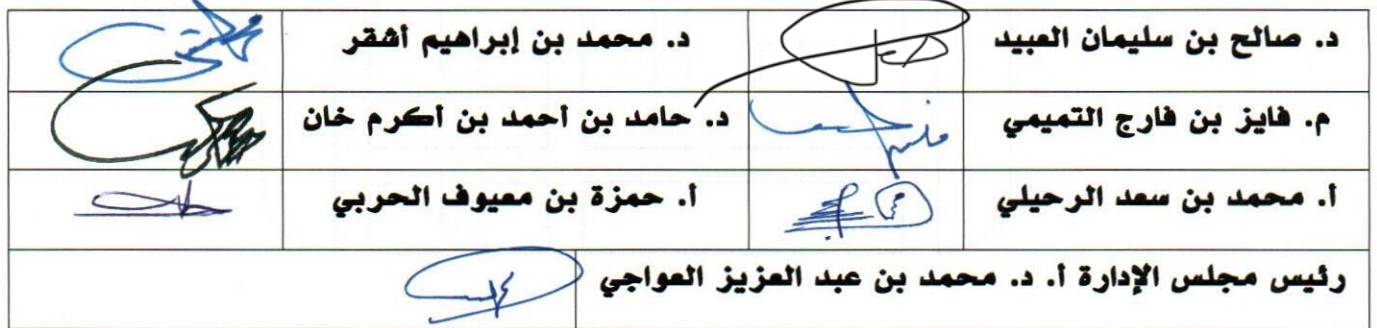 د. صالح بن سليمان العبيد د. محمد بن إبراهيم أشقر
م. فايز بن فارج التميمي د. حامد بن أحمد بن أكرم خان
أ. محمد بن سعد الرحيلي أ. حمزة بن معيوف الحربي
رئيس مجلس الإدارة أ. د. محمد بن عبد العزيز العواجي